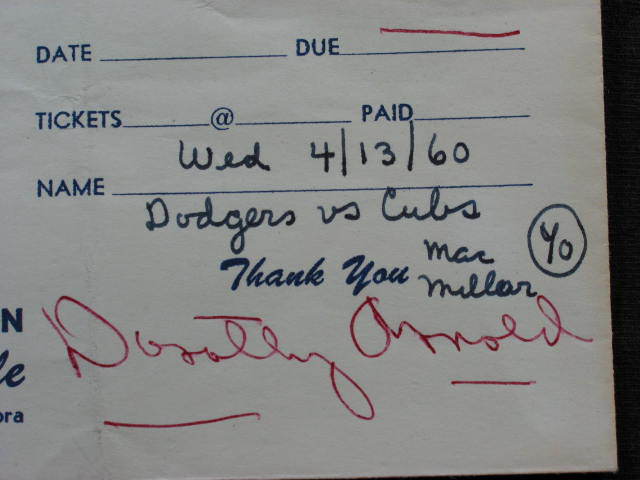 DATE DUE
TICKETS @ PAID
Wed 4/13/60
NAME
Dodgers vs Cubs
Thank You Mac Millar
Yo
N
le
ora
Dorothy Arnold